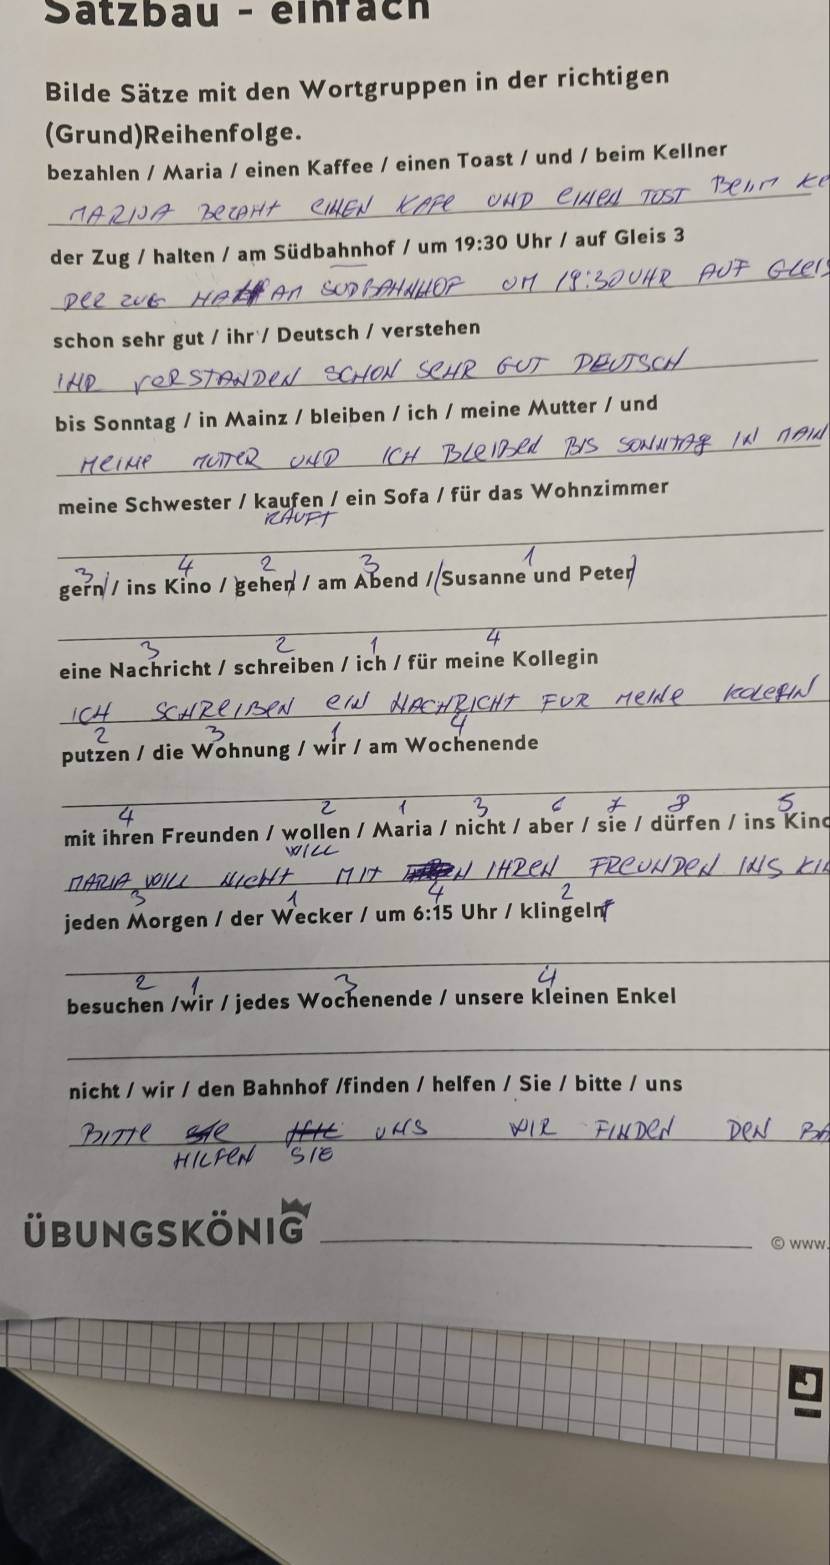 Satzbau - einfach
Bilde Sätze mit den Wortgruppen in der richtigen
(Grund)Reihenfolge.
bezahlen / Maria / einen Kaffee / einen Toast / und / beim Kellner
MARIJA BEZAHT EINEN KAFE UND EINEN TOST BEIM KE
der Zug / halten / am Südbahnhof / um 19:30 Uhr / auf Gleis 3
DER ZUG AM SUDBAHNHOF UM 19:30 UHR AUF GLEIS
schon sehr gut / ihr / Deutsch / verstehen
IHR VERSTANDEN SCHON SEHR GUT DEUTSCH
bis Sonntag / in Mainz / bleiben / ich / meine Mutter / und
MEINE MUTTER UND ICH BLEIBEN BIS SONNTAG IN MAIN
meine Schwester / kaufen / ein Sofa / für das Wohnzimmer
KAUFT
3 4 2 3 1
gern / ins Kino / gehen / am Abend / (Susanne und Peter)
3 2 1 4
eine Nachricht / schreiben / ich / für meine Kollegin
ICH SCHREIBEN EIN NACHRICHT FUR MEINE KOLEGIN
2 3 1 4
putzen / die Wohnung / wir / am Wochenende
4 2 1 3 6 7 8 5
mit ihren Freunden / wollen / Maria / nicht / aber / sie / dürfen / ins Kino
WILL
MARIA WILL NICHT MIT IHREN FREUNDEN INS KI
3 1 4 2
jeden Morgen / der Wecker / um 6:15 Uhr / klingeln
2 1 3 4
besuchen /wir / jedes Wochenende / unsere kleinen Enkel
nicht / wir / den Bahnhof /finden / helfen / Sie / bitte / uns
BITTE UNS WIR FINDEN DEN BA
HILFEN SIE
ÜBUNGSKÖNIG
© www.